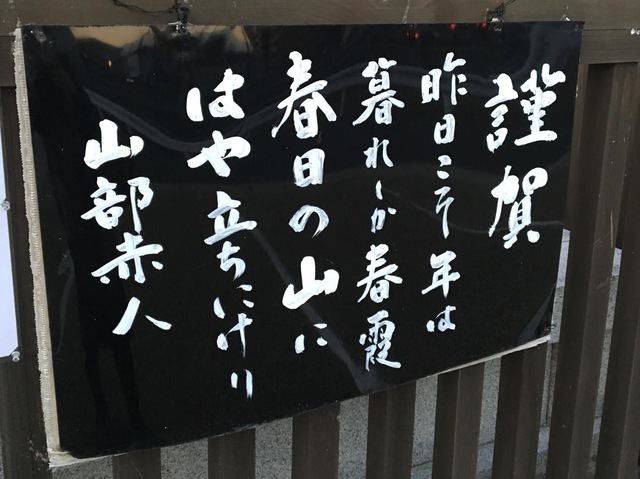 謹賀
昨日こそ年は
暮れしか春霞
春日の山に
はや立ちにけり
山部赤人